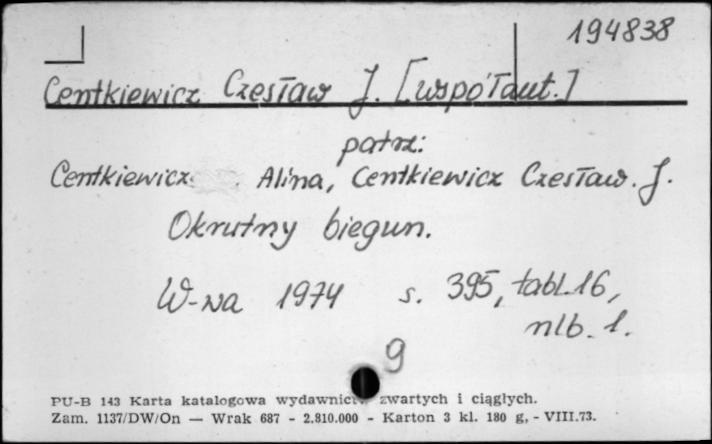 194838
Centkiewicz Czesław J. [współaut.]
patrz:
Centkiewicz Alina, Centkiewicz Czesław. J.
Okrutny biegun.
W-wa 1974 s. 395, tabl. 16,
nlb. 1.
9
PU-B 143 Karta katalogowa wydawnictw zwartych i ciągłych.
Zam. 1137/DW/On — Wrak 687 - 2.810.000 - Karton 3 kl. 180 g, - VIII.73.